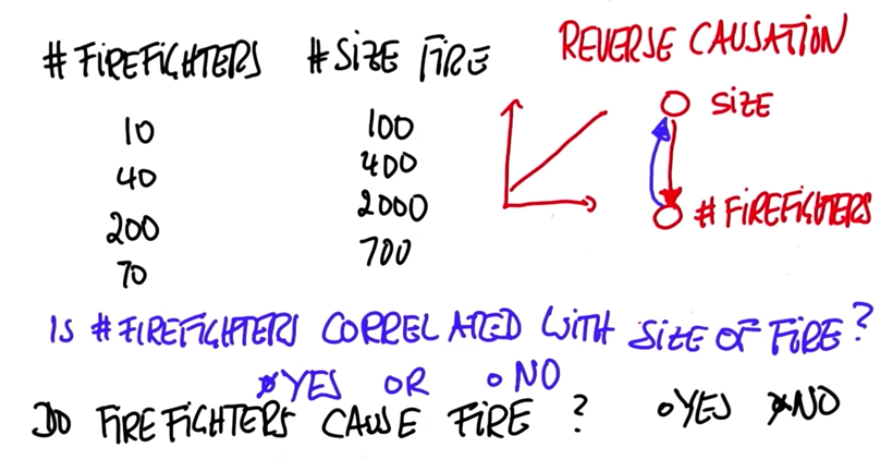 # FIREFIGHTERS # SIZE FIRE
10 100
40 400
200 2000
70 700
REVERSE CAUSATION
SIZE
# FIREFIGHTERS
IS # FIREFIGHTERS CORRELATED WITH SIZE OF FIRE?
YES OR NO
DO FIREFIGHTERS CAUSE FIRE ? YES NO